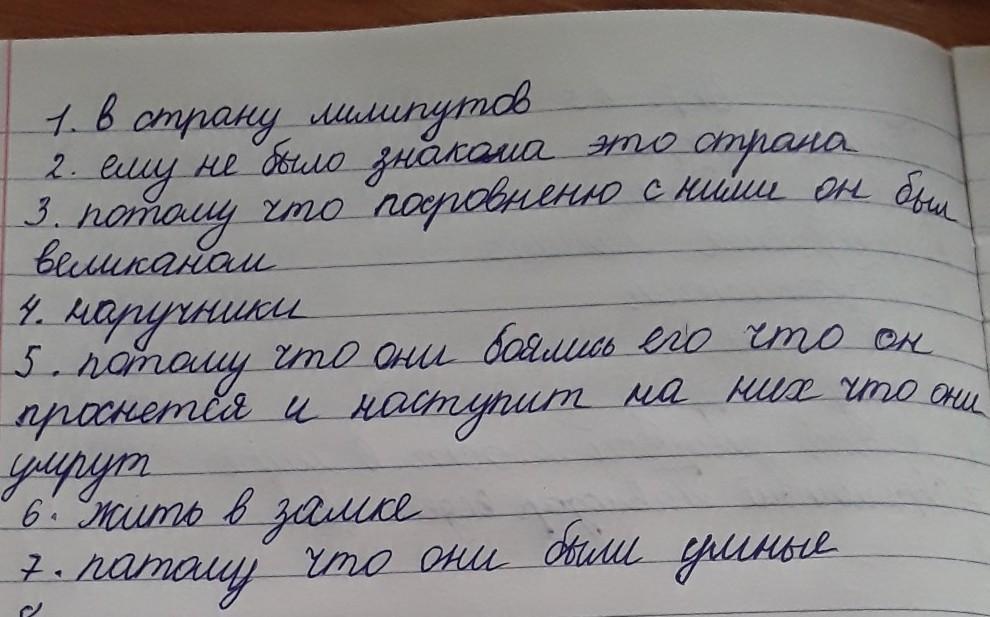 1. в страну лилипутов
2. ему не было знакома это страна
3. потому что посровнению с ними он был
великаном
4. наручники
5. потому что они боялись его что он
проснется и наступит на них что они
умрут
6. жить в замке
7. патому что они были умные